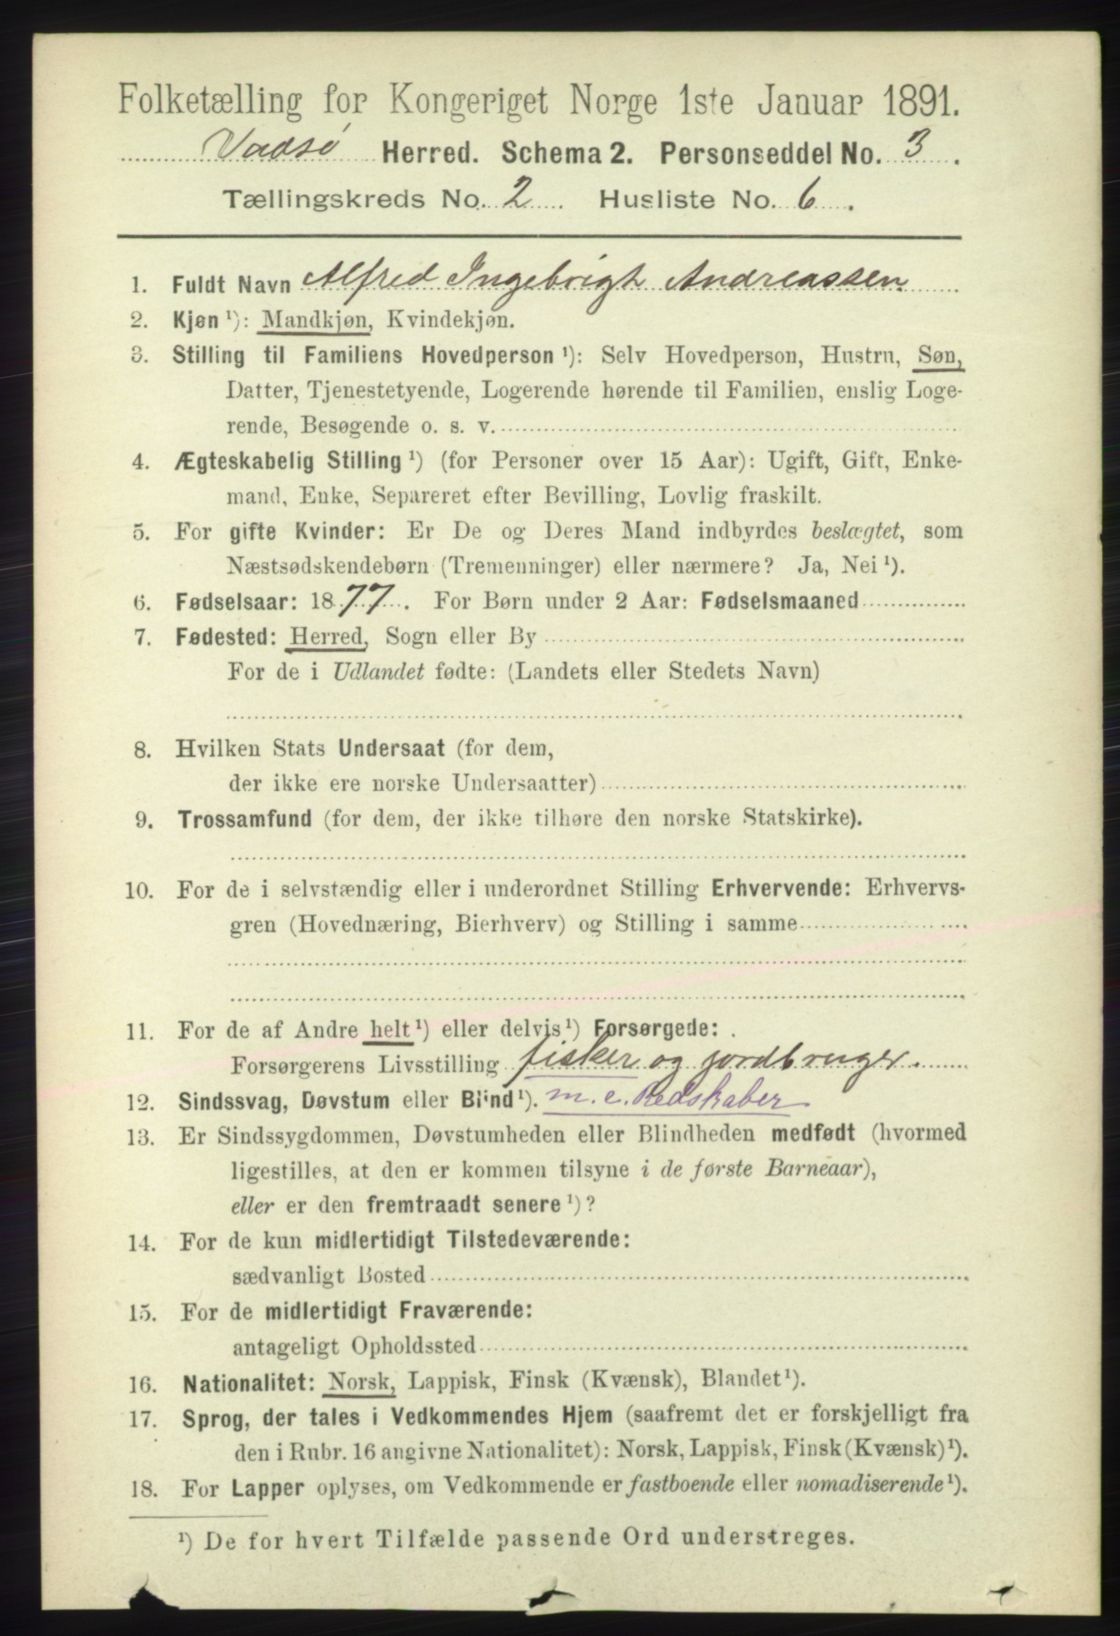 Folketælling for Kongeriget Norge 1ste Januar 1891.
Vadsø Herred. Schema 2. Personseddel No. 3.
Tællingskreds No. 2. Husliste No. 6.
1. Fuldt Navn Alfred Ingebrigt Andreassen
2. Kjøn ¹): Mandkjøn, Kvindekjøn.
3. Stilling til Familiens Hovedperson ¹): Selv Hovedperson, Hustru, Søn,
Datter, Tjenestetyende, Logerende hørende til Familien, enslig Loge-
rende, Besøgende o. s. v.
4. Ægteskabelig Stilling ¹) (for Personer over 15 Aar): Ugift, Gift, Enke-
mand, Enke, Separeret efter Bevilling, Lovlig fraskilt.
5. For gifte Kvinder: Er De og Deres Mand indbyrdes beslægtet, som
Næstsødskendebørn (Tremenninger) eller nærmere? Ja, Nei ¹).
6. Fødselsaar: 1877. For Børn under 2 Aar: Fødselsmaaned
7. Fødested: Herred, Sogn eller By
For de i Udlandet fødte: (Landets eller Stedets Navn)
8. Hvilken Stats Undersaat (for dem,
der ikke ere norske Undersaatter)
9. Trossamfund (for dem, der ikke tilhøre den norske Statskirke).
10. For de i selvstændig eller i underordnet Stilling Erhvervende: Erhvervs-
gren (Hovednæring, Bierhverv) og Stilling i samme
11. For de af Andre helt ¹) eller delvis ¹) Forsørgede:
Forsørgerens Livsstilling fisker og jordbruger.
12. Sindssvag, Døvstum eller Blind ¹). m. e. Redskaber
13. Er Sindssygdommen, Døvstumheden eller Blindheden medfødt (hvormed
ligestilles, at den er kommen tilsyne i de første Barneaar),
eller er den fremtraadt senere ¹)?
14. For de kun midlertidigt Tilstedeværende:
sædvanligt Bosted
15. For de midlertidigt Fraværende:
antageligt Opholdssted
16. Nationalitet: Norsk, Lappisk, Finsk (Kvænsk), Blandet ¹).
17. Sprog, der tales i Vedkommendes Hjem (saafremt det er forskjelligt fra
den i Rubr. 16 angivne Nationalitet): Norsk, Lappisk, Finsk (Kvænsk) ¹).
18. For Lapper oplyses, om Vedkommende er fastboende eller nomadiserende ¹).
¹) De for hvert Tilfælde passende Ord understreges.